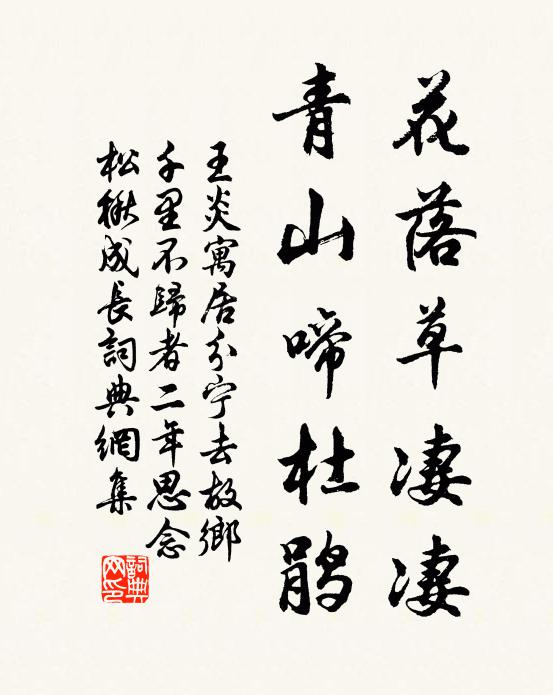 花落草凄凄
青山啼杜鹃
王炎寓居分宁去故鄉
千里不歸者二年思念
松楸成長詞典網集
詞典网印